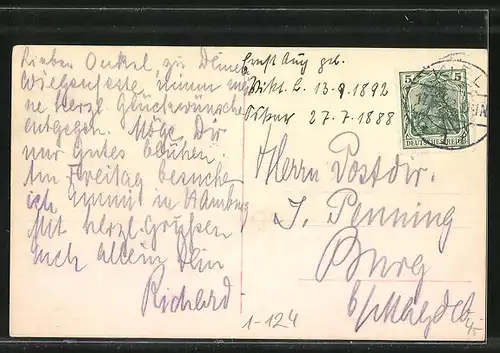 Lieben Onkel, zu Deinem
Wiegenfeste, nimm mei-
ne herzl. Glückwünsche
entgegen. Möge Dir
nur Gutes blühen.
Am Freitag besuche
ich Emmi in Hamburg
Mit herzl. Grüßen
Euch allein Dein
Richard.
Ernst Aug geb.
Vikt. L. 13.9.1892
Oskar 27.7.1888
5 5
DEUTSCHES REICH
Herrn Postdir.
J. Penning
Burg
b/Magdeb.
1-124